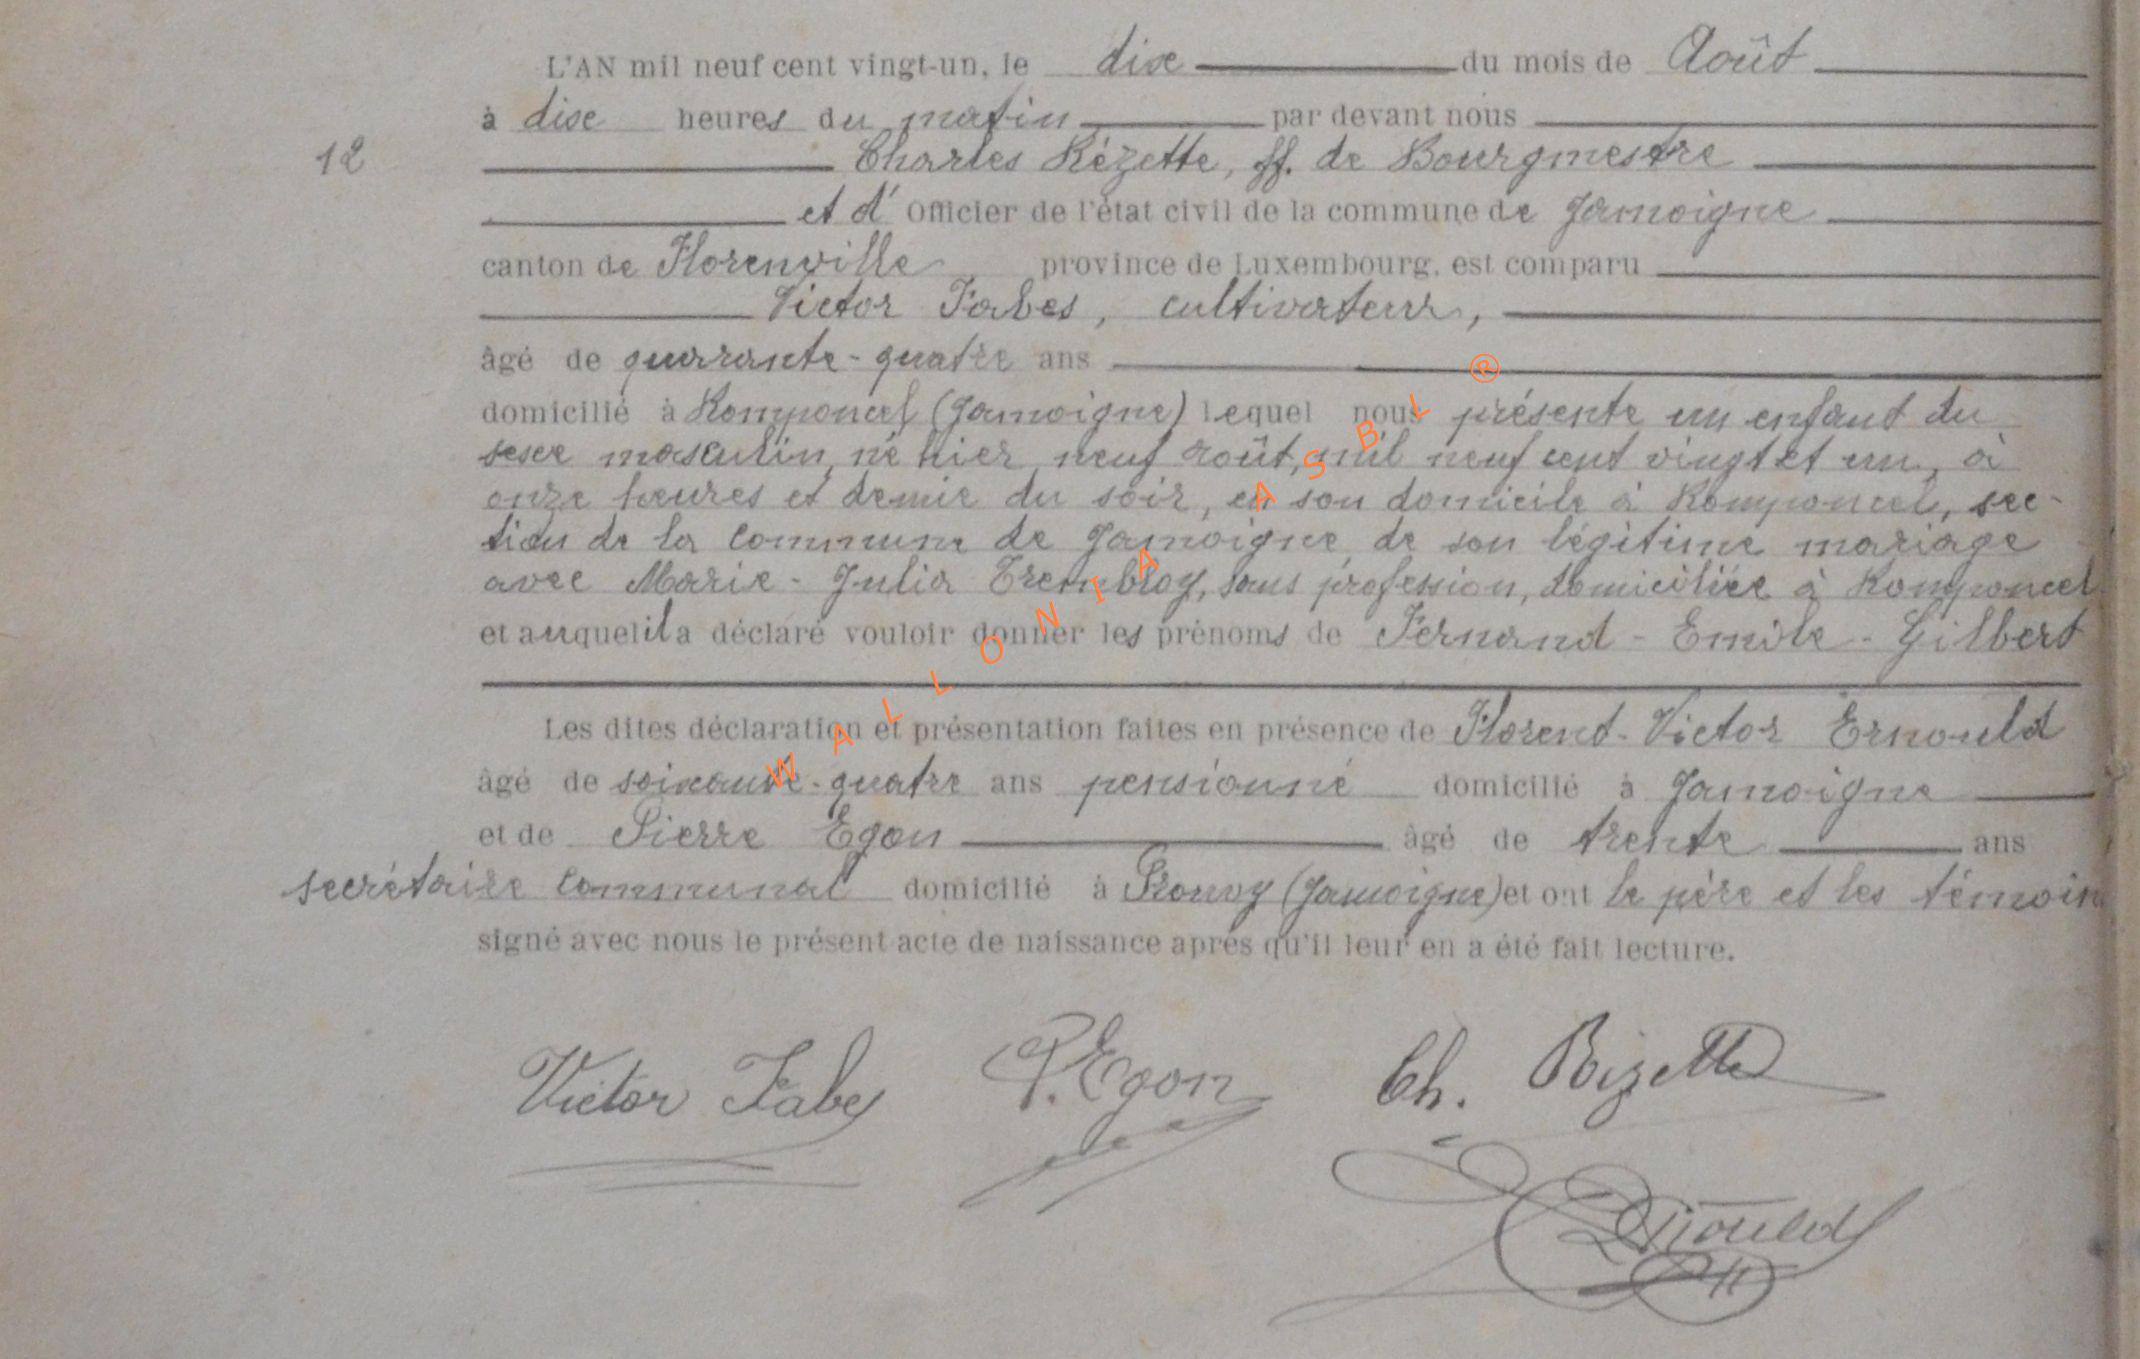 L'AN mil neuf cent vingt-un, le dix du mois de Août
à dix heures du matin par devant nous
12
Charles Rézette, ff. de Bourgmestre
et d' Officier de l'état civil de la commune de Jamoigne
canton de Florenville province de Luxembourg, est comparu
Victor Fabes, cultivateur,
âgé de quarante-quatre ans
domicilié à Romponcel (Jamoigne) lequel nous présente un enfant du
sexe masculin, né hier, neuf août, mil neuf cent vingt et un, à
onze heures et demie du soir, en son domicile à Romponcel, sec-
tion de la commune de Jamoigne, de son légitime mariage
avec Marie-Julia Trembloy, sans profession, domiciliée à Romponcel
et auquel il a déclaré vouloir donner les prénoms de Fernand-Emile-Gilbert
Les dites déclaration et présentation faites en présence de Florent-Victor Ernould
âgé de soixante-quatre ans pensionné domicilié à Jamoigne
et de Pierre Egon âgé de trente ans
secrétaire communal domicilié à Prouvy (Jamoigne) et ont le père et les témoins
signé avec nous le présent acte de naissance après qu'il leur en a été fait lecture.
Victor Fabes P. Egon Ch. Rizette
Ernould
WALLONIA ASBL ®